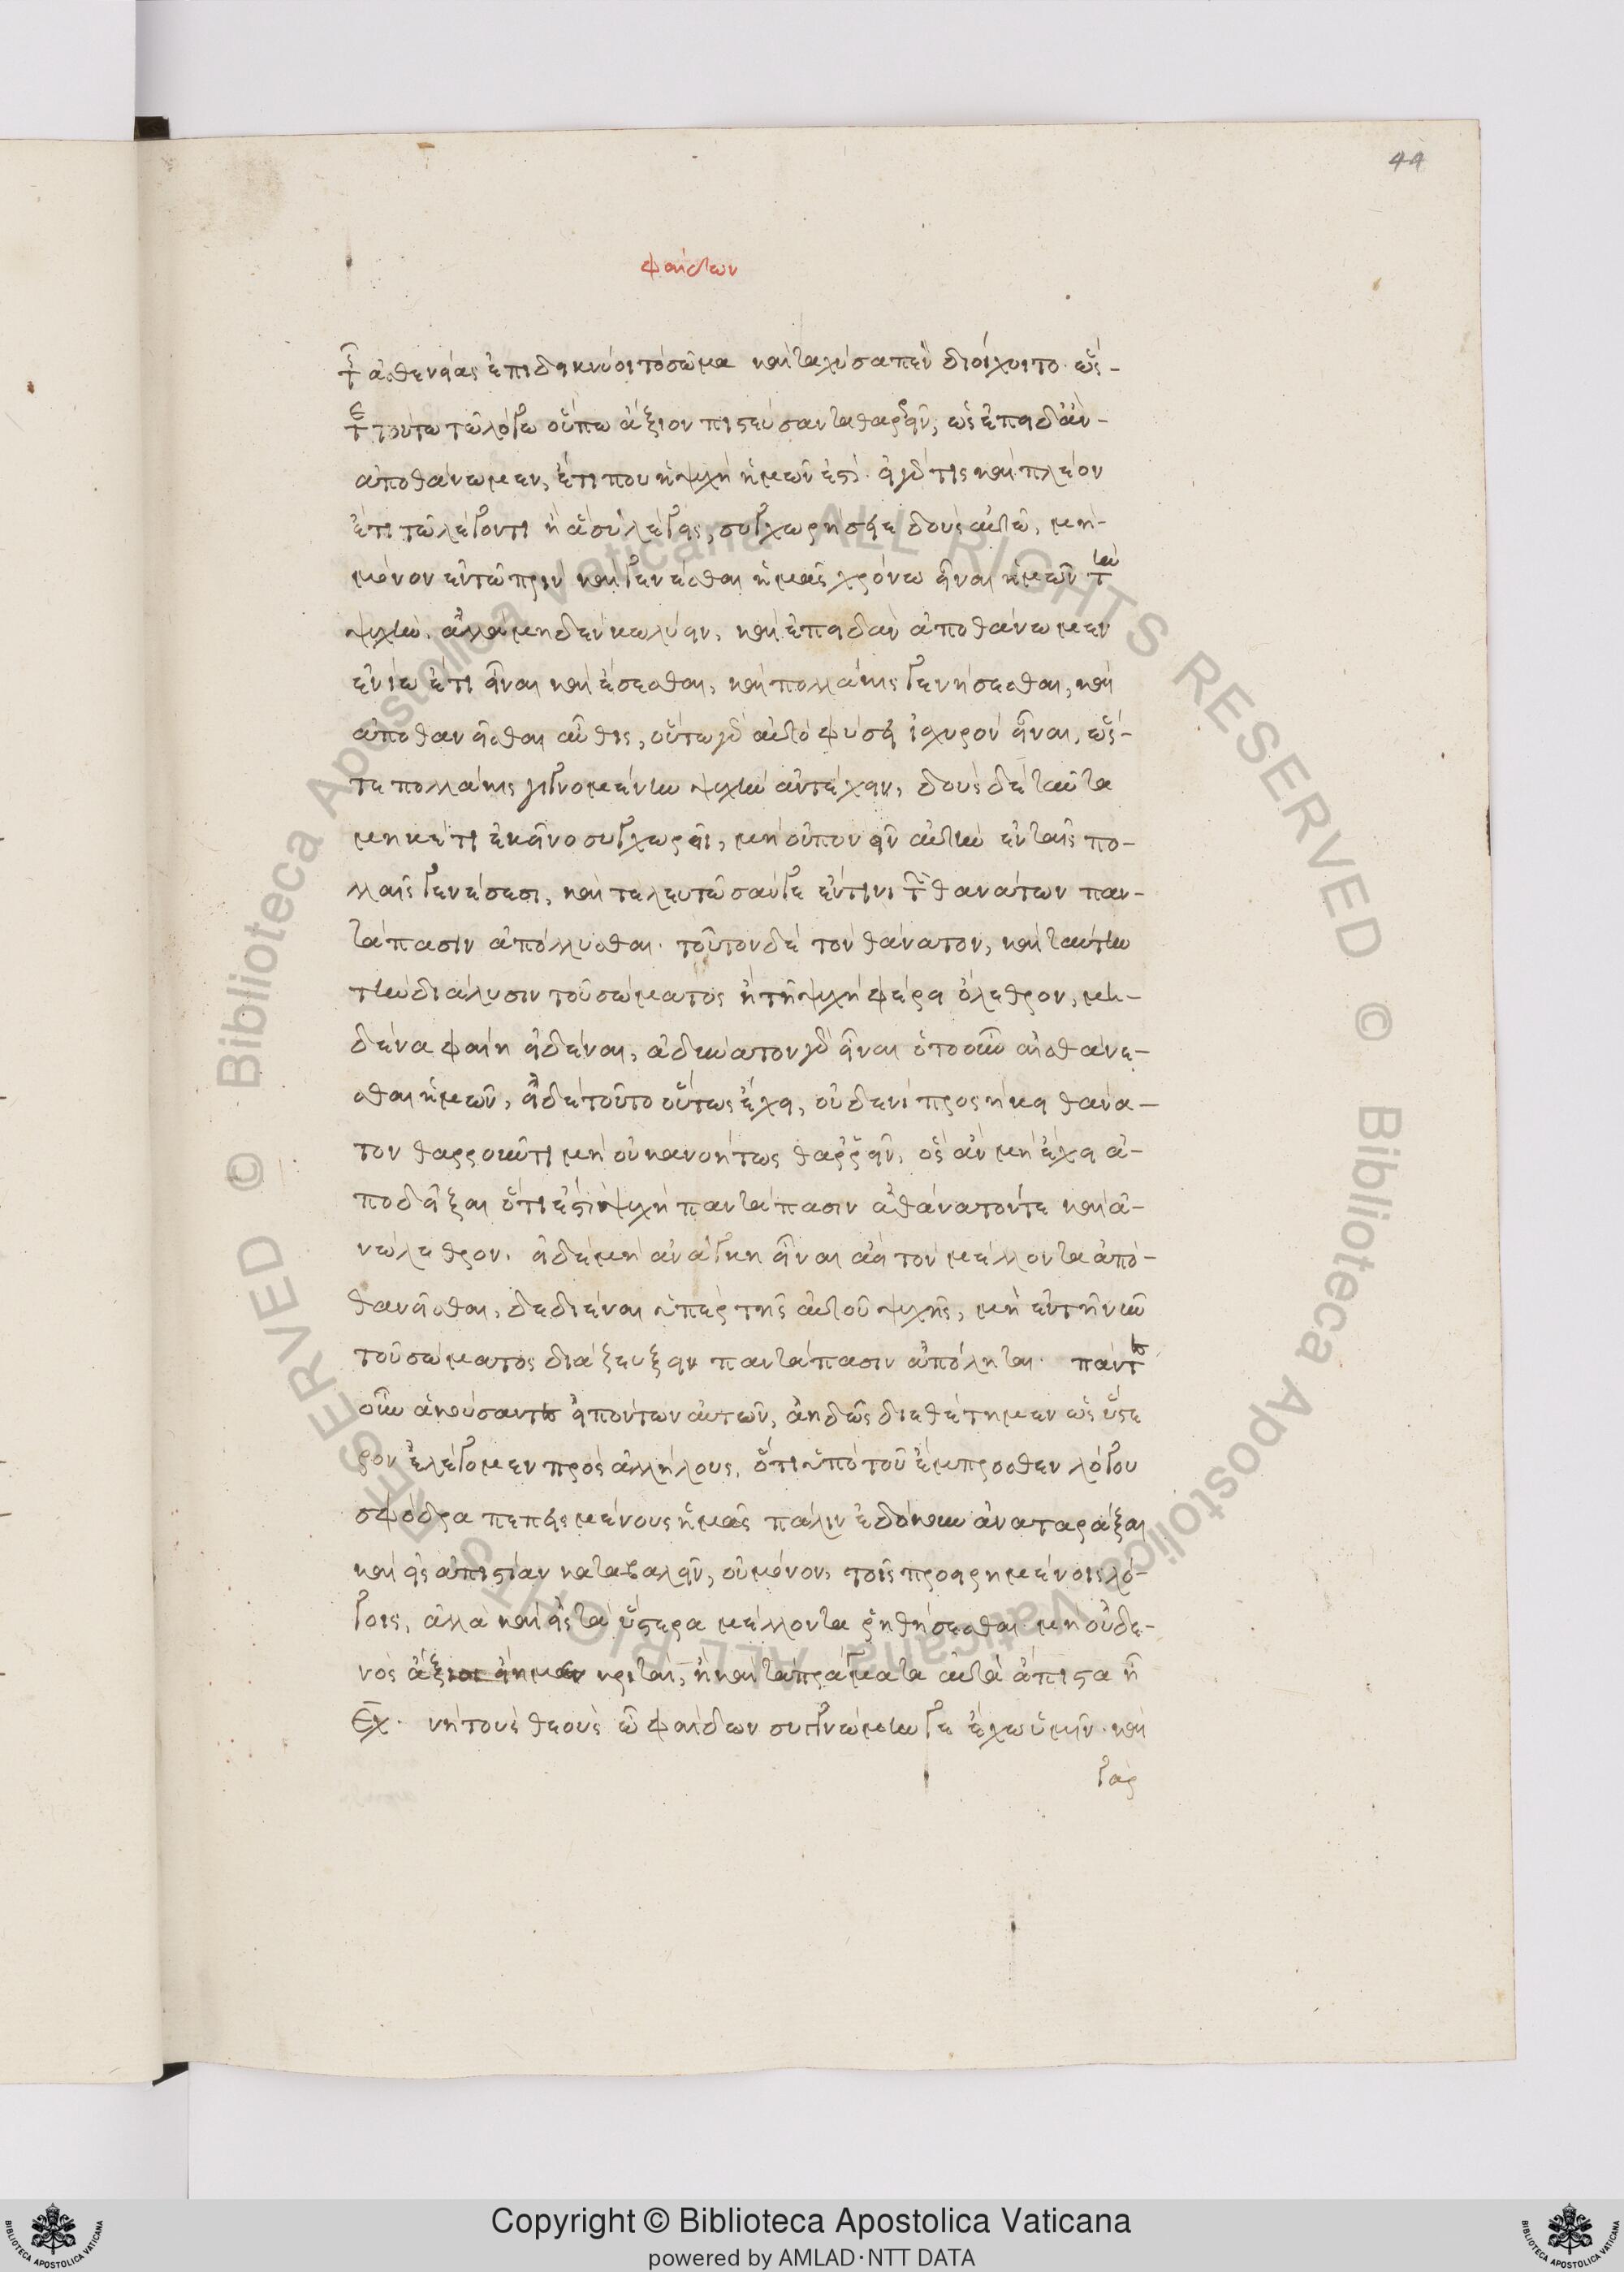 44
φαίδων
τῆς ἀσθενείας ἐπιδεικνύοι τὸ σῶμα καὶ ταχὺ σαπὲν διοίχοιτο. ὥς-
τε τούτω τῶ λόγω οὔπω ἄξιον πιστεύσαντα θαρρεῖν, ὡς ἐπειδὰν-
ἀποθάνωμεν, ἔτι που ἡ ψυχὴ ἡμῶν ἐστί. εἰ γάρ τις καὶ πλέον
ἔτι τῶ λέγοντι ἢ ἃ σὺ λέγεις, συγχωρήσειε δοὺς αὐτῶ, μὴ-
μόνον ἐν τῶ πρὶν καὶ γενέσθαι ἡμᾶς χρόνω εἶναι ἡμῶν τὴν
ψυχὴν. ἀλλὰ μηδὲν κωλύειν, καὶ ἐπειδὰν ἀποθάνωμεν
ἐνίω ἔτι εἶναι καὶ ἔσεσθαι, καὶ πολλάκις γενήσεσθαι, καὶ
ἀποθανεῖσθαι αὖθις, οὕτω γὰρ αὐτὸ φύσει ἰσχυρὸν εἶναι, ὥς-
τε πολλάκις γιγνομένην ψυχὴν ἀντέχειν, δοὺς δὲ ταῦτα
μηκέτι ἐκεῖνο συγχωρεῖ, μὴ οὐ πονεῖν αὐτὴν ἐν ταῖς πο-
λλαῖς γενέσεσι, καὶ τελευτῶσάν γε ἔν τινι τῶν θανάτων παν-
τάπασιν ἀπόλλυσθαι. τοῦτον δὲ τὸν θάνατον, καὶ ταύτην
τὴν διάλυσιν τοῦ σώματος ἣ τῆ ψυχῆ φέρει ὄλεθρον, μη-
δένα φαίη εἰδέναι, ἀδύνατον γὰρ εἶναι ὁτοοῦν αἰσθάνε-
σθαι ἡμῶν, εἰ δὲ τοῦτο οὕτως ἔχει, οὐδενὶ προσήκει θάνα-
τον θαρροῦντι μὴ οὐκ ἀνοήτως θαρρεῖν, ὃς ἂν μὴ ἔχει ἀ-
ποδεῖξαι ὅτι ἐστὶ ψυχὴ παντάπασιν ἀθάνατόν τε καὶ ἀ-
νώλεθρον. εἰ δὲ μὴ ἀνάγκη εἶναι ἀεὶ τὸν μέλλοντα ἀπο-
θανεῖσθαι, δεδιέναι ὑπὲρ τῆς αὐτοῦ ψυχῆς, μὴ ἐν τῆ νῦν
τοῦ σώματος διαζεύξει παντάπασιν ἀπόληται. πάντες
οὖν ἀκούσαντες εἰπόντων αὐτῶν, ἀηδῶς διεθέτημεν ὡς ὕστε
ρον ἐλέγομεν πρὸς ἀλλήλους, ὅτι ὑπὸ τοῦ ἔμπροσθεν λόγου
σφόδρα πεπεισμένους ἡμᾶς πάλιν ἐδόκουν ἀναταράξαι
καὶ εἰς ἀπιστίαν καταβαλεῖν, οὐ μόνον τοῖς προειρημένοις λό-
γοις, ἀλλὰ καὶ εἰς τὰ ὕστερα μέλλοντα ῥηθήσεσθαι μὴ οὐδε-
νὸς ἄξιοι εἴημεν κριταί, ἢ καὶ τὰ πράγματα αὐτὰ ἄπιστα ᾖ
Εχ. νὴ τοὺς θεοὺς ὦ φαίδων συγγνώμην γε ἔχω ὑμῖν. καὶ
γὰρ
© Biblioteca Apostolica Vaticana ALL RIGHTS RESERVED
Copyright © Biblioteca Apostolica Vaticana
powered by AMLAD·NTT DATA